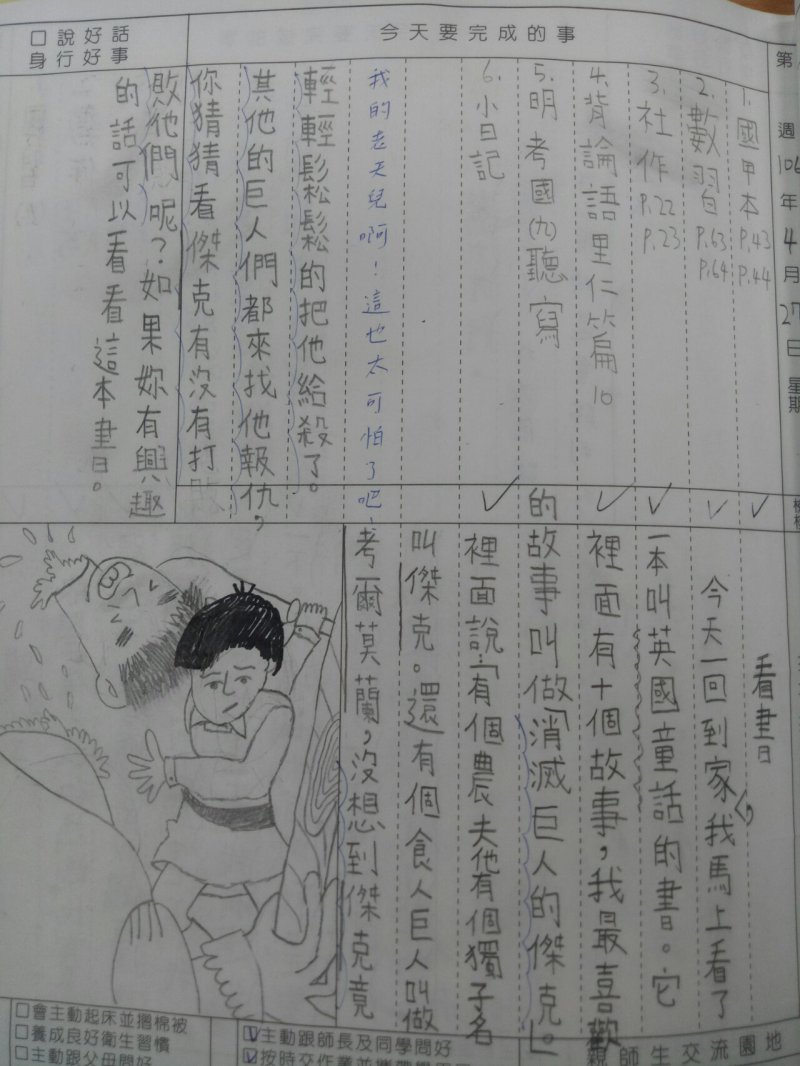 第
週
106年4月27日 星期
今天要完成的事
1. 國甲本 P.43 P.44
2. 數習 P.63 P.64
3. 社作 P.22 P.23
4. 背論語里仁篇10
5. 明考國(九)聽寫
6. 小日記
口說好話
身行好事
看書
今天一回到家,我馬上看了
一本叫英國童話的書。它
裡面有十個故事,我最喜歡
的故事叫做「消滅巨人的傑克。」
裡面說:「有個農夫他有個獨子名
叫傑克。還有個食人巨人叫做
考爾莫蘭,沒想到傑克竟
我的老天兒啊!這也太可怕了吧!
輕輕鬆鬆的把他給殺了。
其他的巨人們都來找他報仇,
你猜猜看傑克有沒有打敗
敗他們呢?如果妳有興趣
的話可以看看這本書。
親師生交流園地
☑主動跟師長及同學問好
□會主動起床並摺棉被
□養成良好衛生習慣
□主動跟父母問好